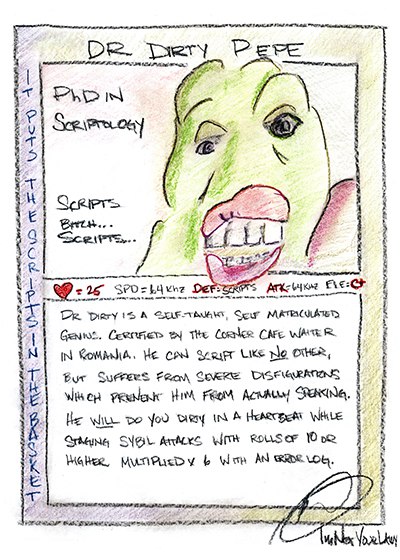 DR DIRTY PEPE
IT PUTS THE SCRIPTS IN THE BASKET
PhD IN
SCRIPTOLOGY
SCRIPTS
BITCH...
SCRIPTS...
= 25 SPD = 64 KHZ DEF= SCRIPTS ATK= 64 KHZ ELE= C+
DR DIRTY IS A SELF-TAUGHT, SELF MATRICULATED
GENIUS. CERTIFIED BY THE CORNER CAFE WAITER
IN ROMANIA. HE CAN SCRIPT LIKE NO OTHER,
BUT SUFFERS FROM SEVERE DISFIGURATIONS
WHICH PREVENT HIM FROM ACTUALLY SPEAKING.
HE WILL DO YOU DIRTY IN A HEARTBEAT WHILE
STAGING SYBIL ATTACKS WITH ROLLS OF 10 OR
HIGHER MULTIPLIED x 6 WITH AN ERROR LOG.